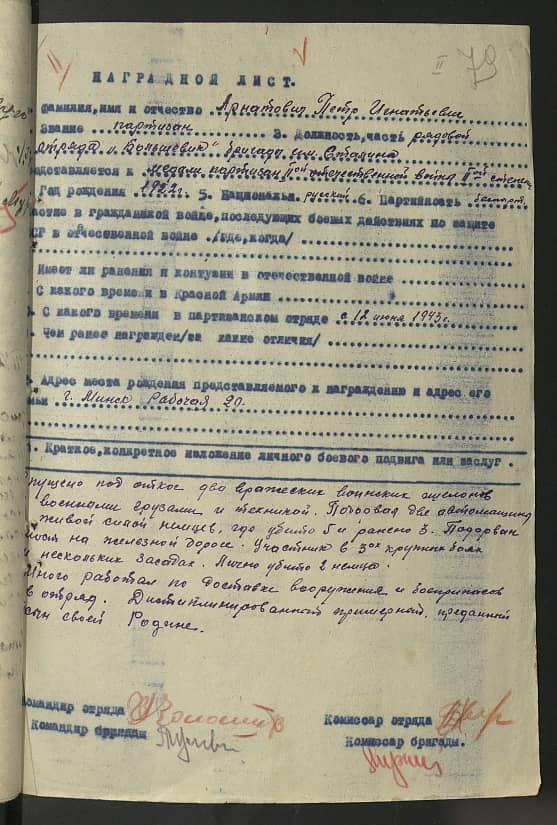 II 79
НАГРАДНОЙ ЛИСТ.
Фамилия, имя и отчество Арнатович Петр Игнатьевич
Звание партизан 3. Должность, часть рядовой
отряда и. "Большевик" бригады им. Сталина
редставляется к медали партизан отечественной войны II ой степени
Год рождения 1922г. 5. Национальн. русский 6. Партийность беспарт.
частие в гражданской войне, последующих боевых действиях по защите
СР и отчесовенной войне /где, когда/
Имеет ли ранения и контузии в отечественной войне
С какого времени в Красной Армии
С какого времени в партизанском отряде с 12 июня 1943г.
Чем ранее награжден/за какие отличия/
Адрес места рождения представляемого к награждению и адрес его
мьи г. Минск Рабочая 20.
Краткое, конкретное изложение личного боевого подвига или заслуг.
пущено под откос два вражеских воинских эшелонов
военными грузами и техникой. Подорвал две автомашины
живой силой немцев, где убито 5 и ранено 3. Подорван
мост на железной дороге. Участник в 3ох крупных боях
и нескольких засадах. Лично убито 2 немца.
Много работал по доставке вооружения и боеприпасов
в отряд. Дисциплинированный примерный, преданный
сын своей Родине.
Командир отряда Комиссар отряда
Командир бригады Комиссар бригады.